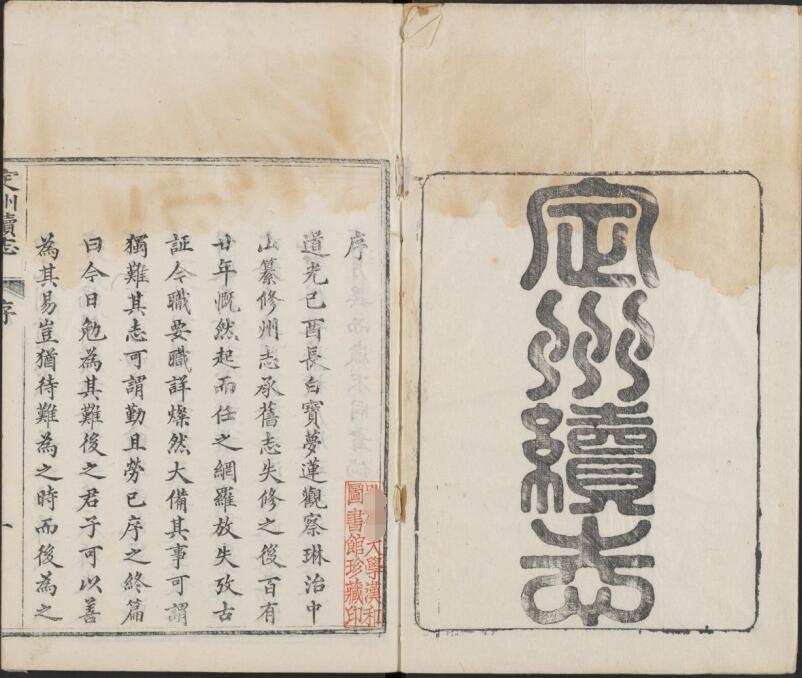 定州續志
序
道光己酉長白寶夢蓮觀察琳治中
山纂修州志承舊志失修之後百有
廿年慨然起而任之網羅放失攷古
証今職要職詳燦然大備其事可謂
獨難其志可謂勤且勞已序之終篇
曰今日勉為其難後之君子可以善
為其易豈猶待難為之時而後為之
定州續志 序 一
大學漢和
圖書館珍藏印